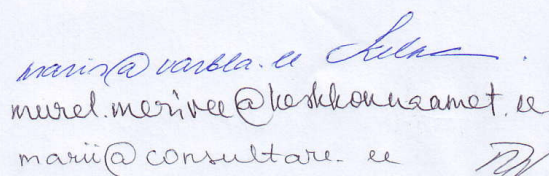 maris@varbla.ee
murel.merivee@keskkonnaamet.ee
marii@consultare.ee